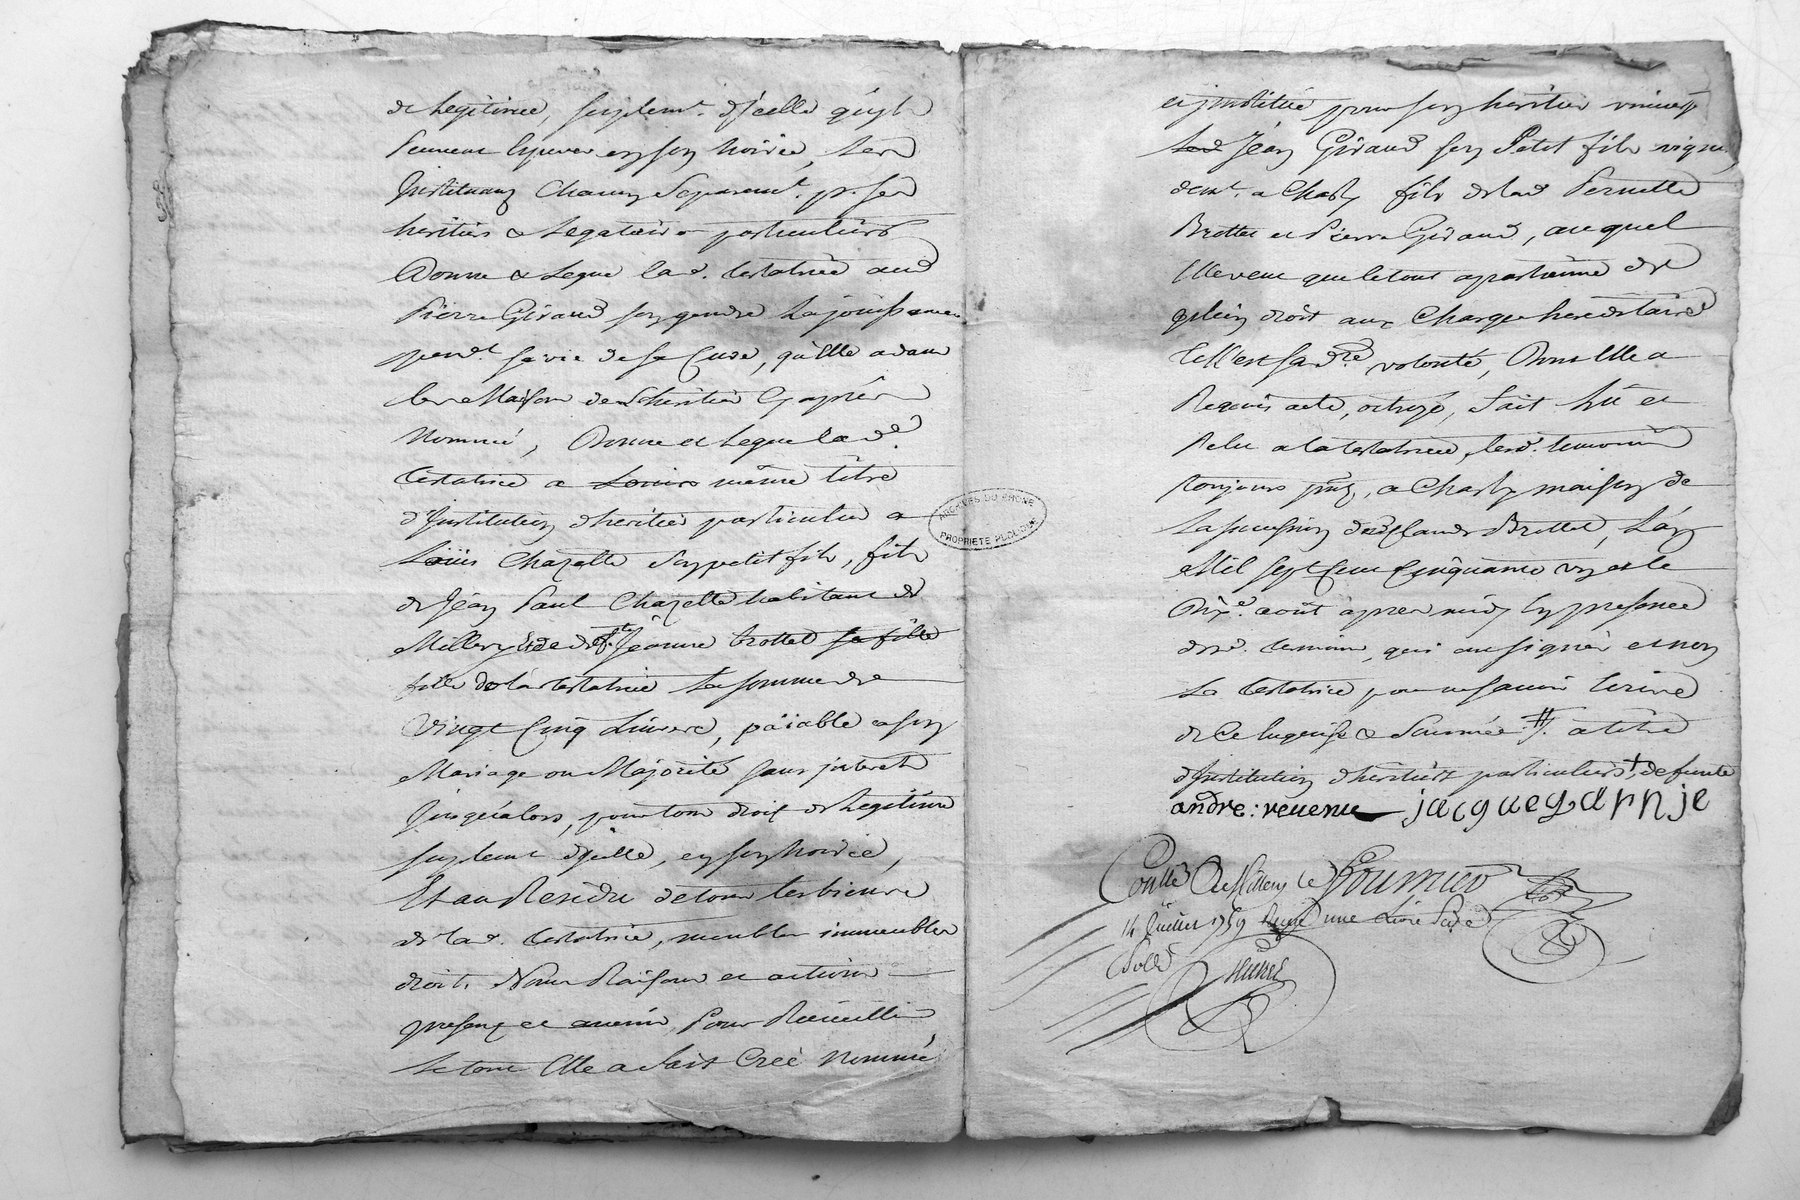 de Legitime, suplemt. d'jcelle qu'yls
peuvent esperer en son hoirie, les
Instituant chacun separemt. pr. ses
heritiers & Legataires particuliers
Donne & Legue lad. testatrice aud
Pierre Giraud son gendre La jouissance
pendt. sa vie de sa Cuve, qu'Elle a dans
les Maison de son heritier Cy aprés
Nommé, Donne et Legue lad.
testatrice a Louis même titre
d'Institution d'heritier particulier a
Loüis Chazelle son petit fils, fils
de Jean Paul Chazelle habitant de
Millery & de Jeanne brottet sa fille
fille de la testatrice La somme de
Vingt Cinq Livres, païable a son
Mariage ou Majorité sans jnterets
jusqu'alors, pour tous droits de Legitime
suplemt d'jcelle, en son hoirie,
Et au Residu de tous les biens
de lad. testatrice, meubles immeubles
droits Noms Raisons et actions
presens et avenir, Pour Recueillir
Le tout Elle a fait Creé Nommé
et jnstitué pour son heritier universel
Led Jean Giraud son Petit fils vigneron
demt. a Charly fils de lad Pernette
Brottet et Pierre Giraud, auquel
Elle veut que le tout apartienne de
plein droit aux Charges hereditaires
telle est sa dre. volonté, Dont Elle a
Requis acte, octroyé, fait Lû et
Relu a la testatrice, lesd. temoins
toujours pnts, a Charly maison de
La succession dud Claude Brottet, L'an
Mil sept Cent Cinquante un et le
Dixe. août après midy En presence
desd. temoins, qui ont signés et non
La testatrice pour ne savoir Ecrire
de ce Enquise & Sommée #. a titre
d'Institution d'heritiers particuliers + defunte
andre: reuenu jacque garnje
Conllé A Millery Le Fournier
14 Juillet 1759 Reçu une Livre Seize
Solds